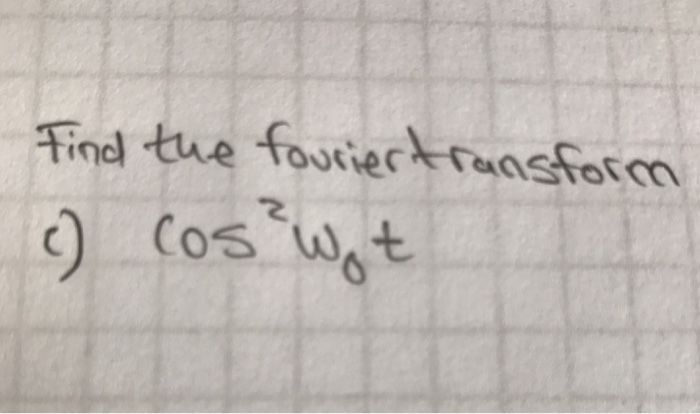 Find the fourier transform
c) cos²w₀t